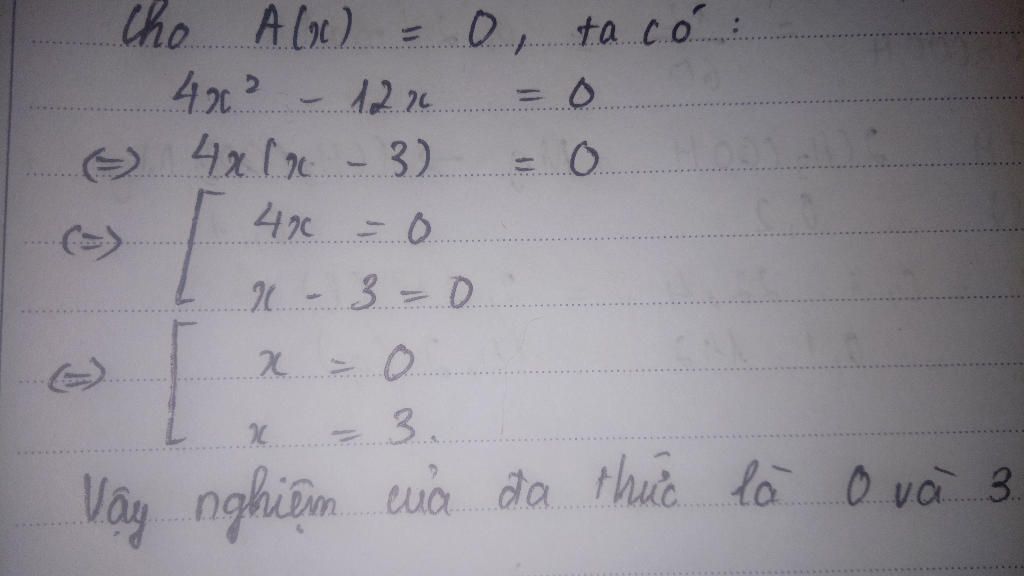 Cho A(x) = 0, ta có:
4x² - 12x = 0
(=) 4x(x - 3) = 0
(=) [ 4x = 0
x - 3 = 0
(=) [ x = 0
x = 3.
Vậy nghiệm của đa thức là 0 và 3